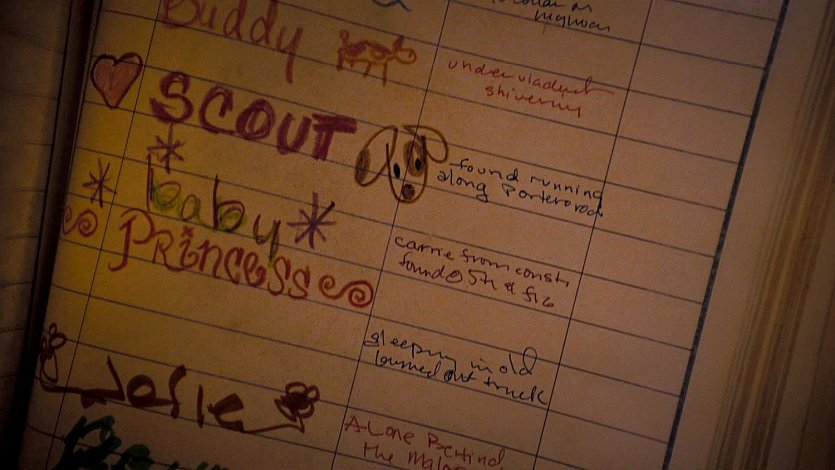 highway
Buddy
under viaduct
shivering
SCOUT
found running
along
baby
Princess
came from const.
found @ 5th & fig
sleeping in old
burned out truck
Josie
Alone Behind
the